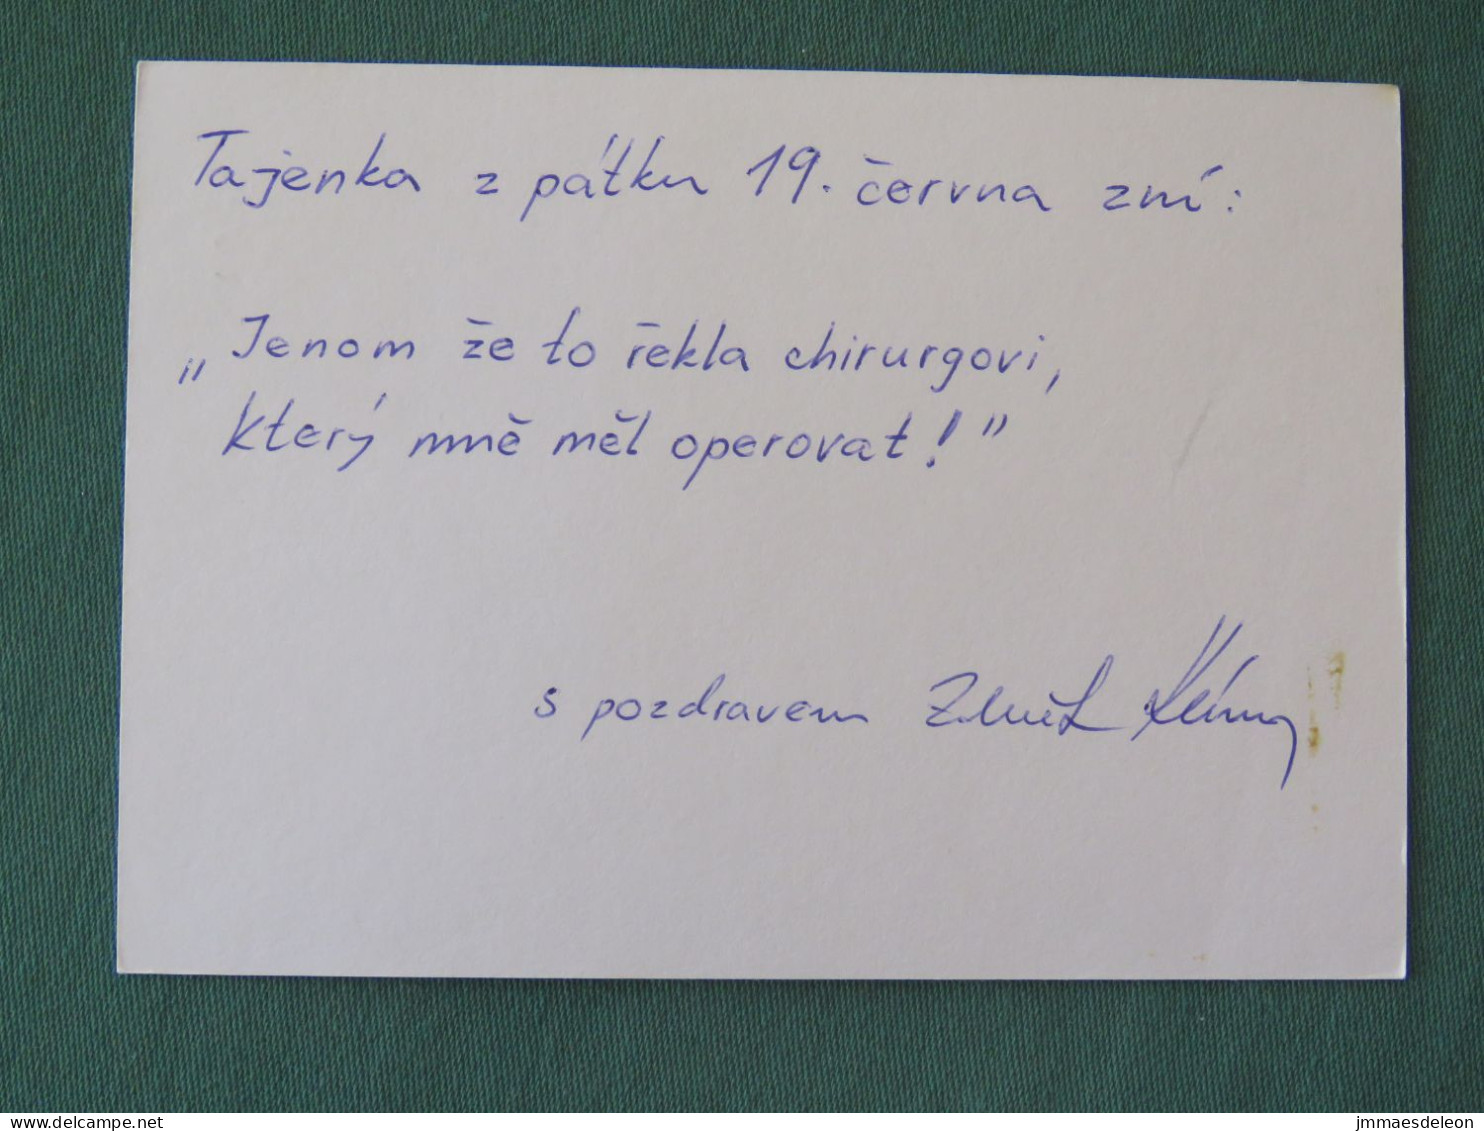 Tajenka z pátku 19. června zní:
„Jenom že to řekla chirurgovi,
který mně měl operovat!"
s pozdravem
delcampe.net
jmmaesdeleon